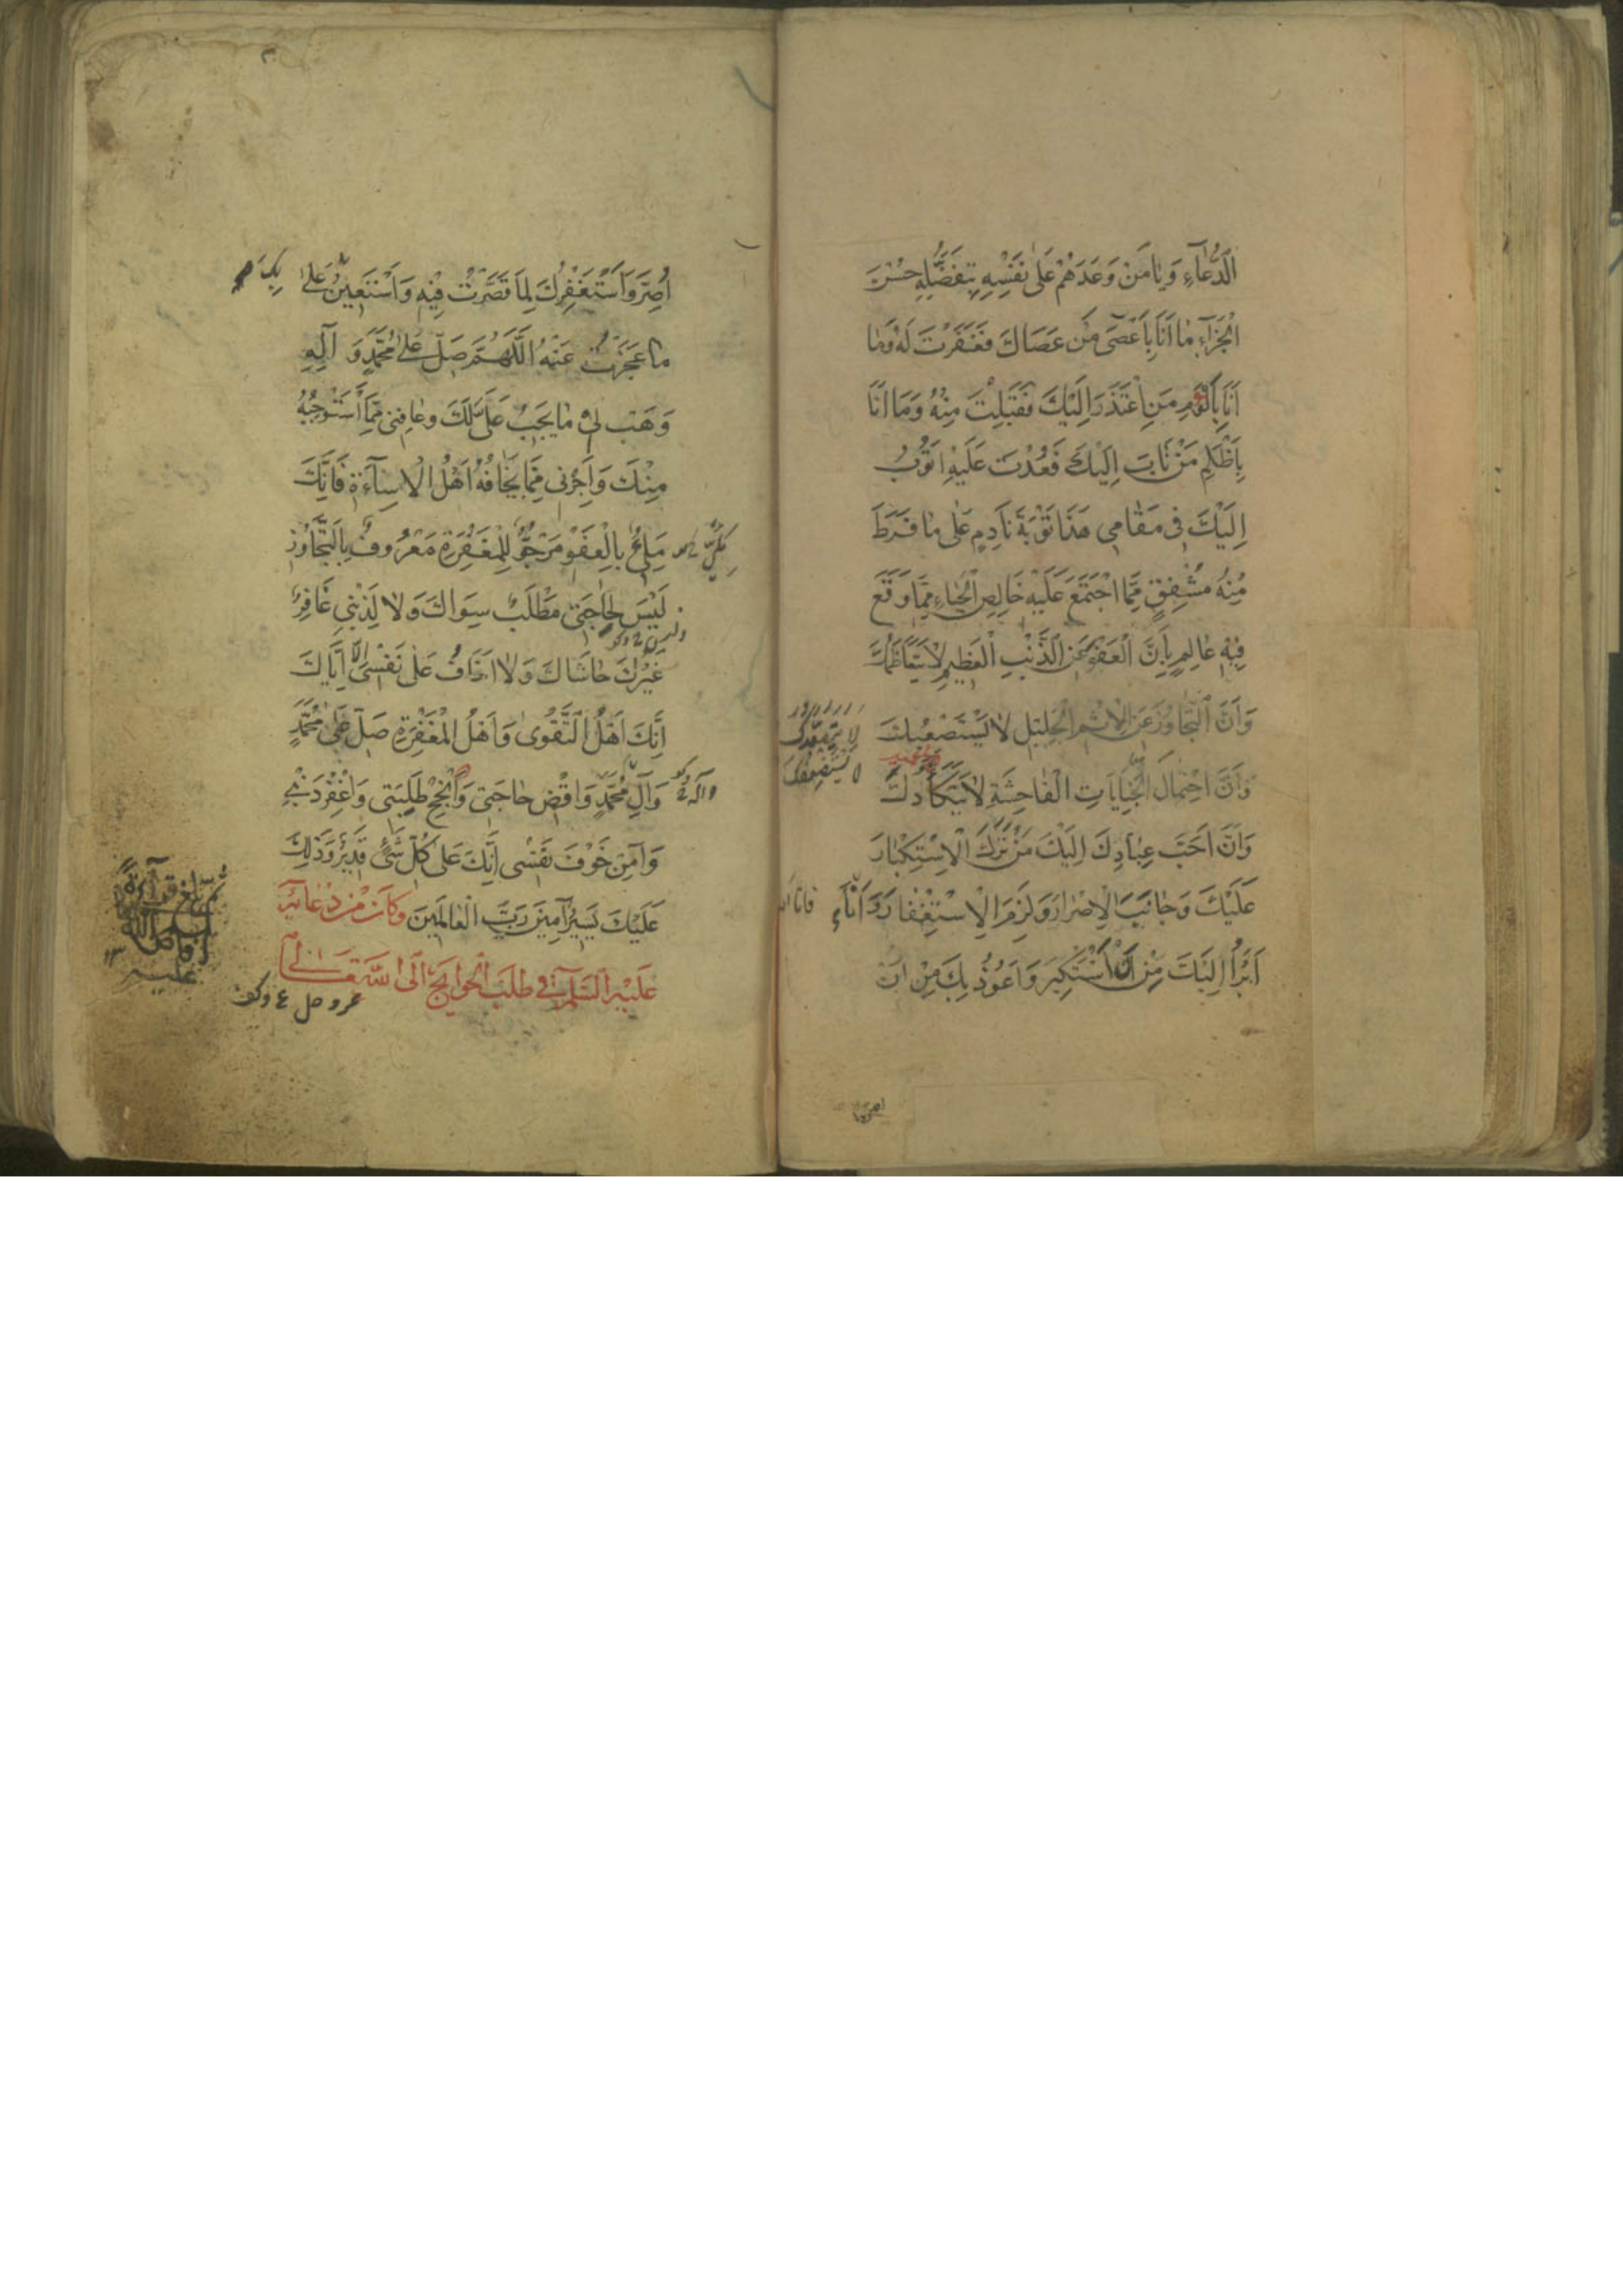 الدُّعَآءِ وَيَا مَنْ وَعَدَهُمْ عَلَى نَفْسِهِ بِتَفَضُّلِهِ حُسْنَ
الْجَزَآءِ مَا اَنَا بِاَعْصَى مَنْ عَصَاكَ فَغَفَرْتَ لَهُ وَمَا
اَنَا بِاَلْوَمِ مَنِ اعْتَذَرَ اِلَيْكَ فَقَبِلْتَ مِنْهُ وَمَا اَنَا
بِاَظْلَمِ مَنْ تَابَ اِلَيْكَ فَعُدْتَ عَلَيْهِ اَتُوبُ
اِلَيْكَ فِى مَقَامِى هَذَا تَوْبَةَ نَادِمٍ عَلَى مَا فَرَطَ
مِنْهُ مُشْفِقٍ مِمَّا اجْتَمَعَ عَلَيْهِ خَالِصِ الْحَيَاءِ مِمَّا وَقَعَ
فِيْهِ عَالِمٍ بِاَنَّ الْعَفْوَ عَنِ الذَّنْبِ الْعَظِيمِ لَا يَتَعَاظَمُكَ
وَاَنَّ التَّجَاوُزَ عَنِ الْاِثْمِ الْجَلِيْلِ لَا يَسْتَصْعِبُكَ
وَاَنَّ احْتِمَالَ الْجِنَايَاتِ الْفَاحِشَةِ لَا يَتَكَأَّدُكَ
وَاَنَّ اَحَبَّ عِبَادِكَ اِلَيْكَ مَنْ تَرَكَ الْاِسْتِكْبَارَ
عَلَيْكَ وَجَانَبَ الْاِصْرَارَ وَلَزِمَ الْاِسْتِغْفَارَ وَاَنَا
اَبْرَأُ اِلَيْكَ مِنْ اَنْ اَسْتَكْبِرَ وَاَعُوذُ بِكَ مِنْ اَنْ
اصرّوا
اُصِرَّ وَاَسْتَغْفِرُكَ لِمَا قَصَّرْتُ فِيْهِ وَاَسْتَعِيْنُ عَلَى بِكَ
مَا عَجَزْتُ عَنْهُ اللَّهُمَّ صَلِّ عَلَى مُحَمَّدٍ وَ آلِهِ
وَهَبْ لِى مَا يَجِبُ عَلَىَّ لَكَ وَعَافِنِى مِمَّا اَسْتَوْجِبُهُ
مِنْكَ وَاَجِرْنِى مِمَّا يَخَافُهُ اَهْلُ الْاِسَآءَةِ فَاِنَّكَ
مَلِىءٌ بِالْعَفْوِ مَرْجُوٌّ لِلْمَغْفِرَةِ مَعْرُوفٌ بِالتَّجَاوُزِ
لَيْسَ لِحَاجَتِى مَطْلَبٌ سِوَاكَ وَلَا لِذَنْبِى غَافِرٌ
غَيْرُكَ حَاشَاكَ وَلَا اَخَافُ عَلَى نَفْسِى اِلَّا اِيَّاكَ
اِنَّكَ اَهْلُ التَّقْوَى وَاَهْلُ الْمَغْفِرَةِ صَلِّ عَلَى مُحَمَّدٍ
وَآلِ مُحَمَّدٍ وَاقْضِ حَاجَتِى وَاَنْجِحْ طَلِبَتِى وَاغْفِرْ ذَنْبِى
وَآمِنْ خَوْفَ نَفْسِى اِنَّكَ عَلَى كُلِّ شَىْءٍ قَدِيْرٌ وَذَلِكَ
عَلَيْكَ يَسِيْرٌ آمِيْنَ رَبَّ الْعَالَمِينَ وَكَانَ مِنْ دُعَائِهِ
عَلَيْهِ السَّلَمُ فِى طَلَبِ الْحَوَائِجِ اِلَى اللّهِ تَعَالَى